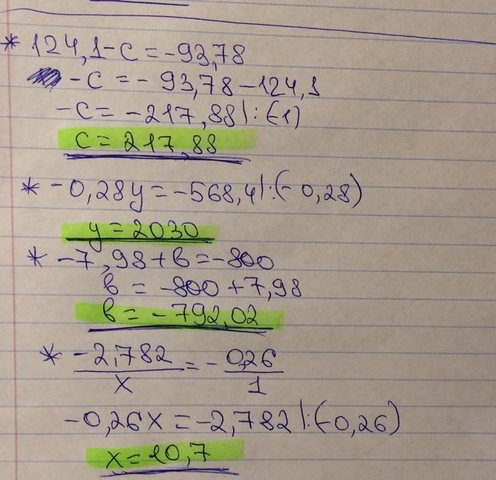 * 124,1-c=-93,78
-c=-93,78-124,1
-c=-217,88|:(-1)
c=217,88
* -0,28y=-568,4|:(-0,28)
y=2030
* -7,98+b=-800
b=-800+7,98
b=-792,02
* -2,782/x=-0,26/1
-0,26x=-2,782|:(-0,26)
x=10,7